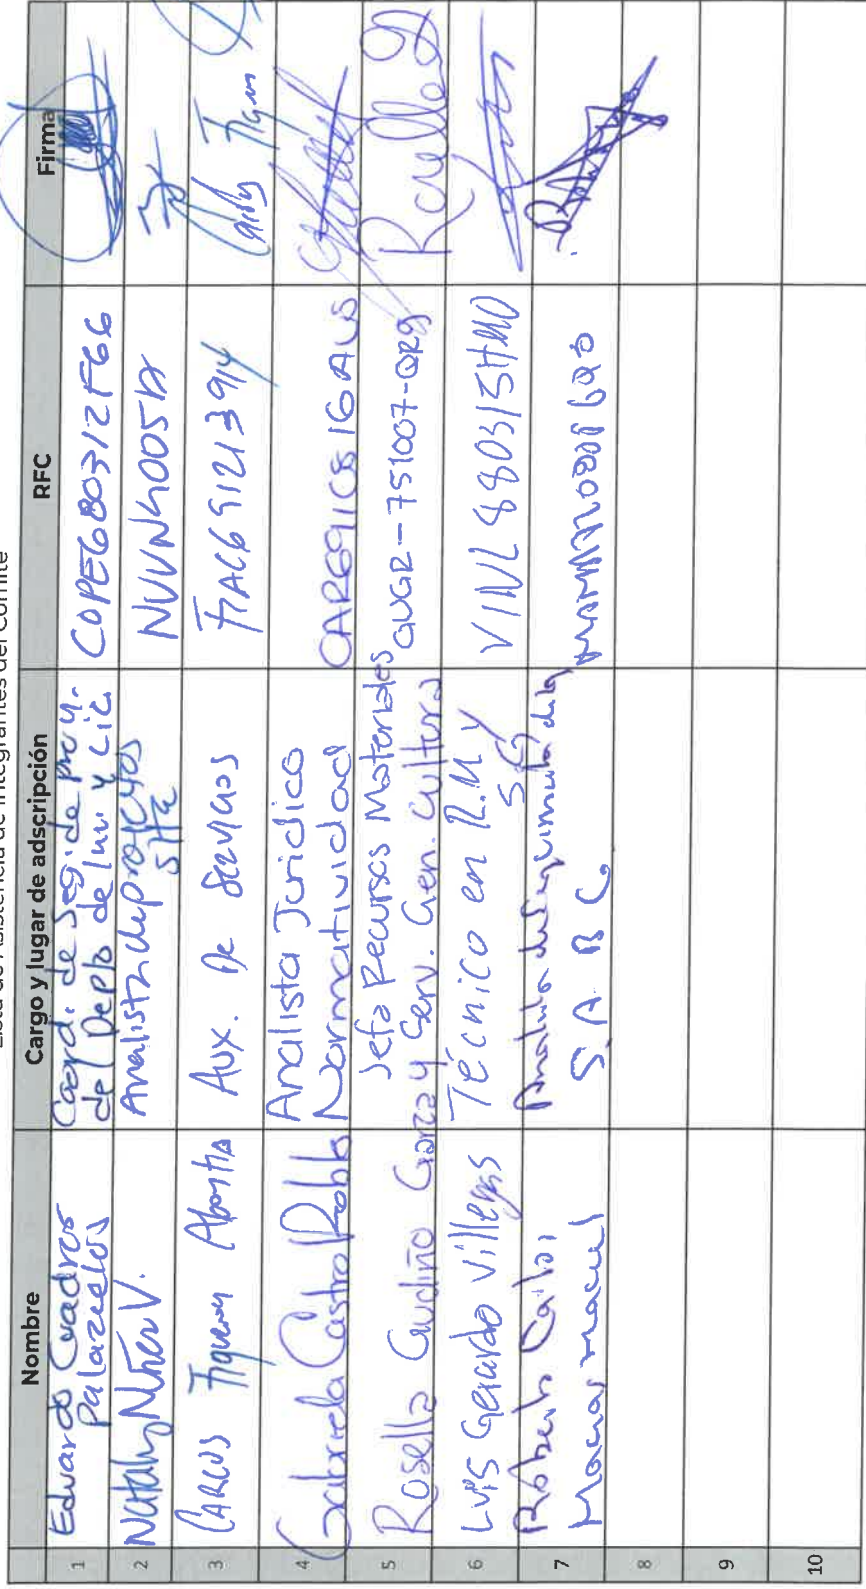 Lista de Asistencia de Integrantes del Comité
Nombre Cargo y lugar de adscripción RFC Firma
1 Eduardo Cuadros Palazuelos
Coord. de Seg. de proy. del Depto de Inv. y Lic.
COPE680312F66
2 Nataly Núñez V.
Analista de proyectos SHF
3 Carlos Figueroa Abontia
Aux. De Servicios
FIAC691213914
Carlos Figueroa
4 Gabriela Castro Robles
Analista Jurídico Normatividad
CARG910816AU8
5 Rosella Gudiño Garza
Jefa Recursos Materiales y Serv. Gen. Cultura
GUGR-751007-QR9
Rosella G
6 Luis Gerardo Villegas
Técnico en R.M y S G
VINL880315HM0
7 Roberto Carlos Macias Maciel
Analista de seguimiento de la S.A.B.C.
8
9
10